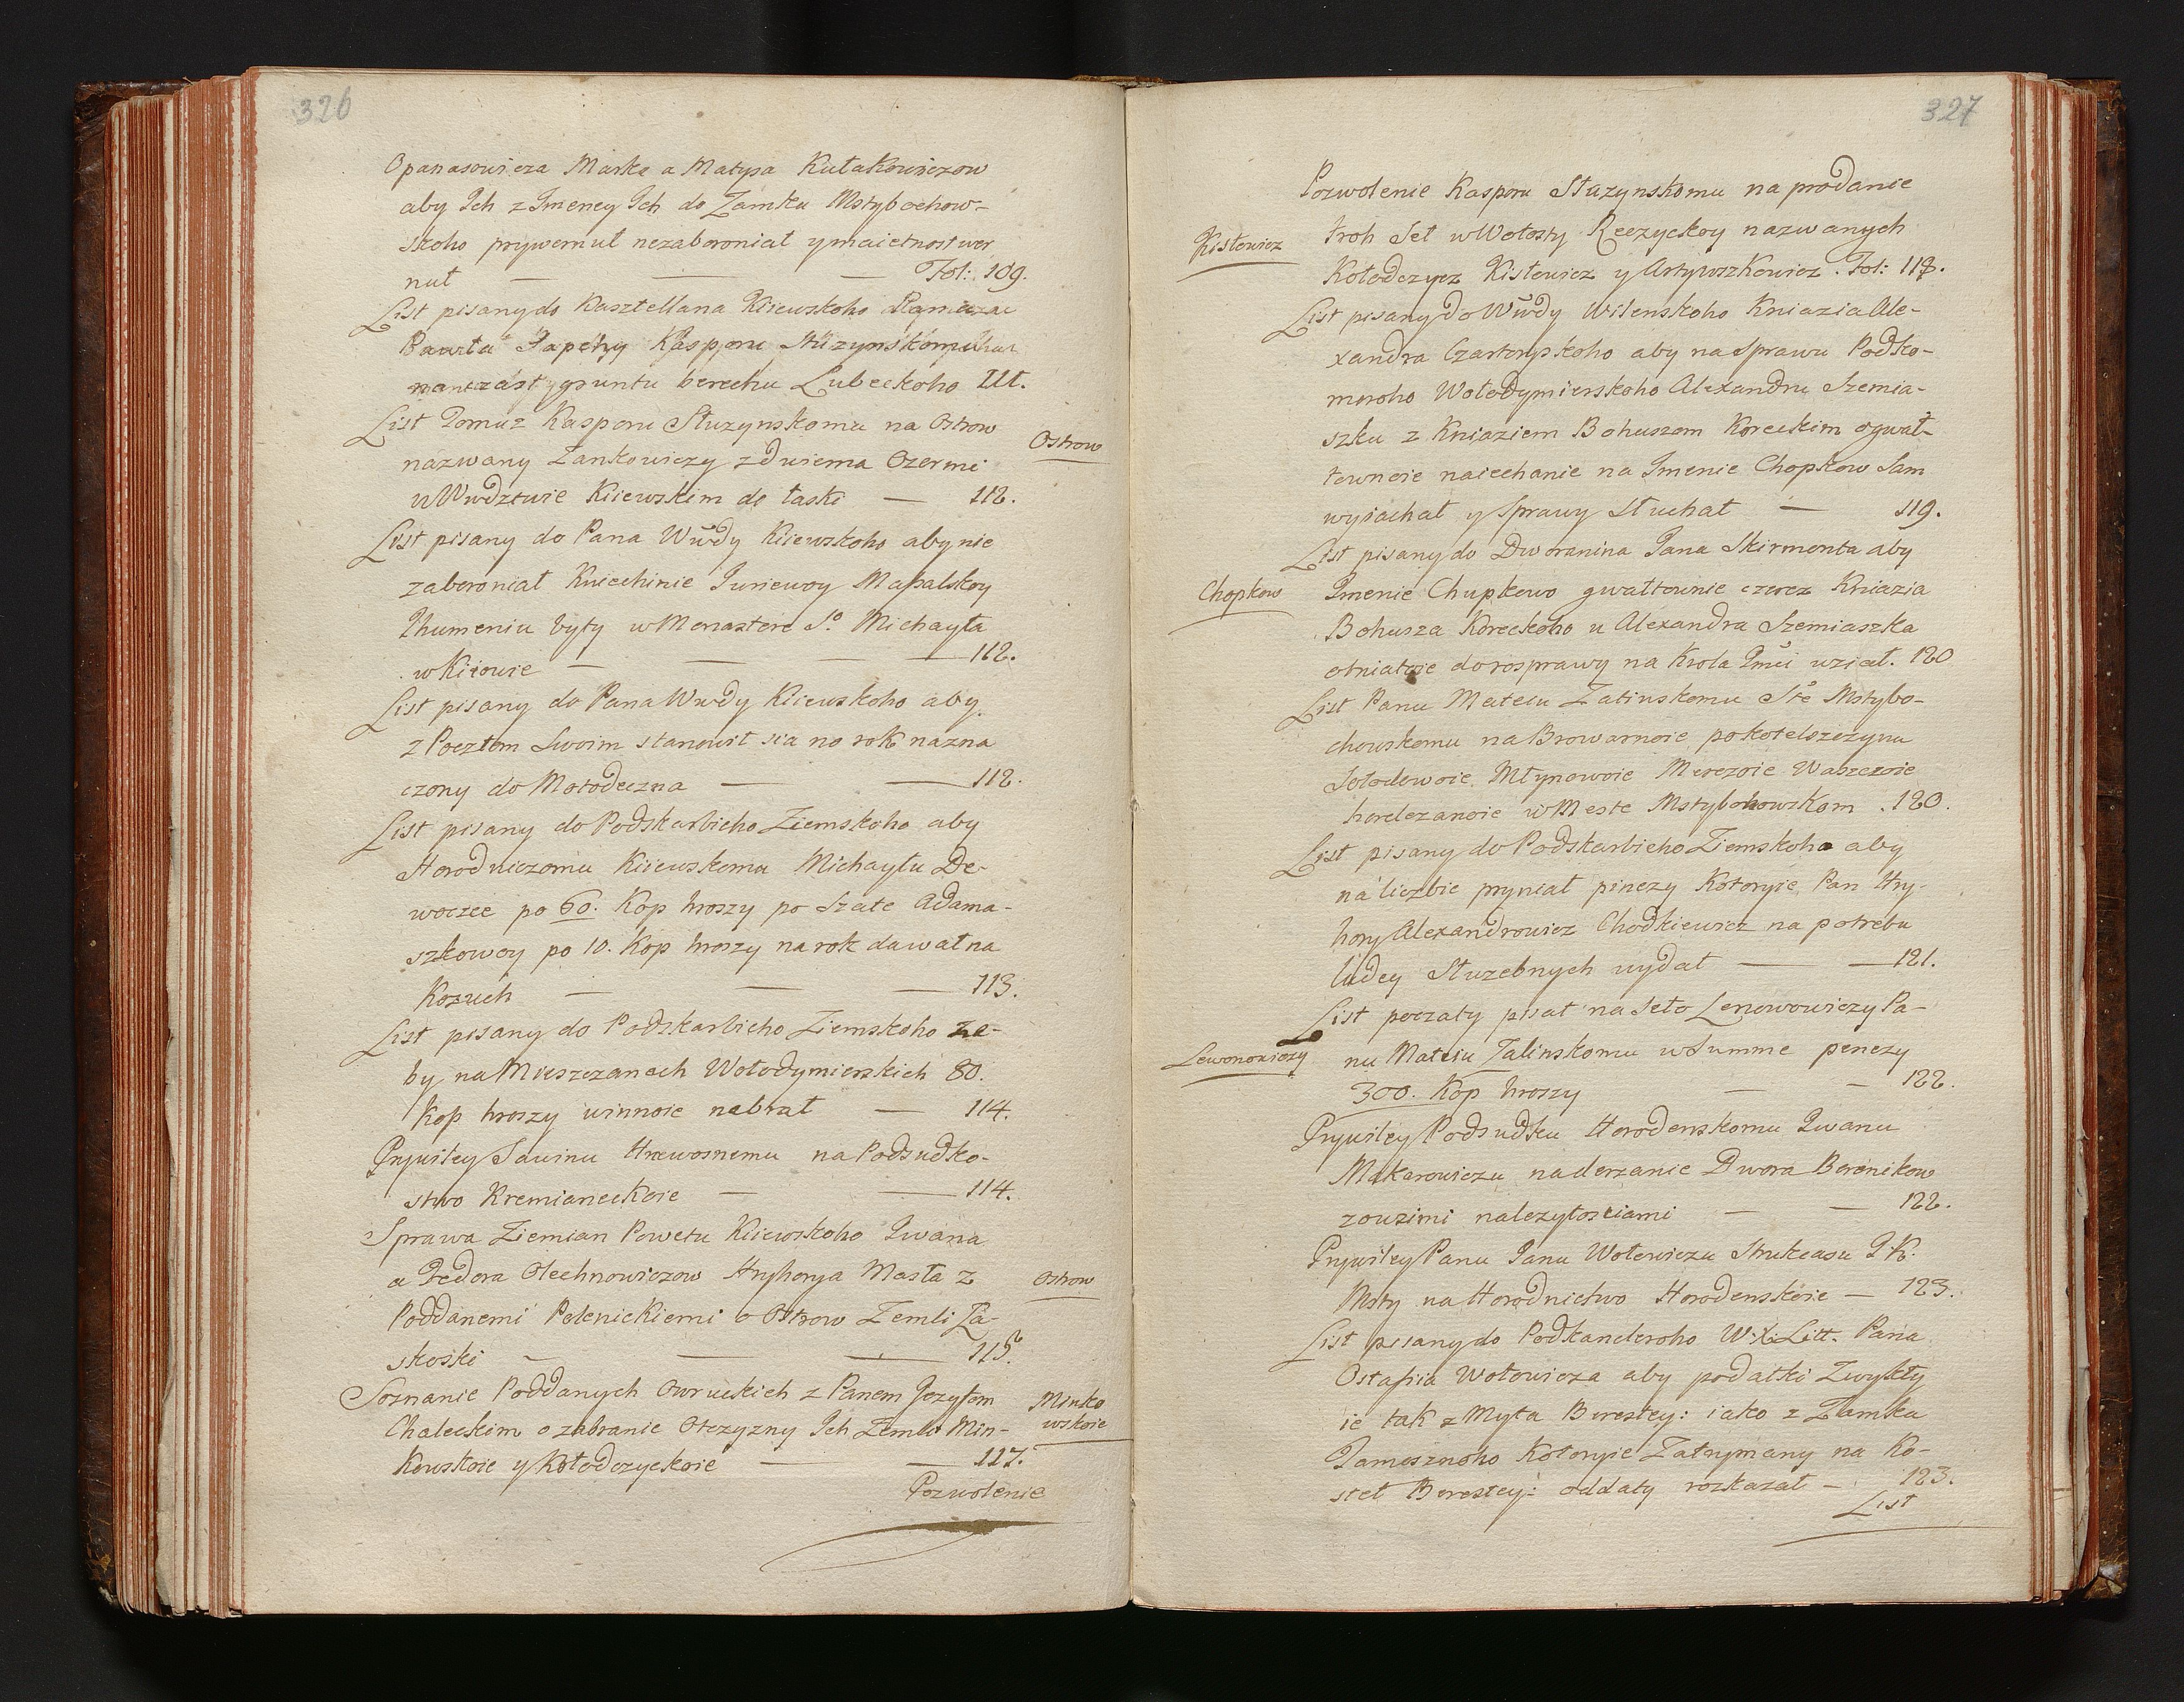 326
Opanasowicza Marka a Matysa Kułakowiczow
aby Ich z Imeney Ich do Zamku Mstybochow-
skoho prywernuł nezaboroniał y maietnost wer
nuł — — — Fol: 109.
List pisany do Kasztellana Kiiewskoho
Pawła Sapehy Kasporu Stuzynskomu
gruntu berehu Lubeckoho 111.
List Tomuz Kasporu Stuzynskomu na Ostrow
Ostrow
nazwany Zankowiczy z dwiema Ozermi
w Wwdztwie Kiiewskim do łaski — 112.
List pisany do Pana Wwdy Kiiewskoho aby nie
zaboroniał Kniechinie Juriewoy Masalskoy
Ihumeniu byty w Monastere So Michayła
w Kiiowie — — — 112.
List pisany do Pana Wwdy Kiiewskoho aby
z Pocztom Swoim stanowił sia no rok nazna
czony do Mołodeczna — — 112.
List pisany do Podskarbieho Ziemskoho aby
Horodniczomu Kiiewskomu Michayłu De-
woczce po 60. Kop hroszy po Szate Adama-
szkowoy po 10. Kop hroszy na rok dawał na
Kozuch — — — 113.
List pisany do Podskarbieho Ziemskoho ze-
by na Mieszczanach Wołodymierskich 80.
Kop hroszy winnoie nebrał — 114.
Prywiley Sawinu Hrewosnemu na Podsudko-
stwo Kremianeckoie — — 114.
Sprawa Ziemian Powetu Kiiewskoho Iwana
a Fedora Olechnowiczow Hryhorya Masła z
Ostrow
Poddanemi Pelenickiemi o Ostrow Zemli Za-
skoski — — — 115.
Soznanie Poddanych Owruckich z Panem Jozyfom
Minko
wskoie
Chaleckim o zabranie Otczyzny Ich Zemli Min-
kowskoie y Kołodczyckoie — — 117.
Pozwolenie
327
Pozwolenie Kasporu Stuzynskomu na prodanie
Kisłowicz
troh Seł w Wołosty Reczyckoy nazwanych
Kołodczycz Kisłowicz y Artywszkowicz. Fol: 118.
List pisany do Wwdy Wilenskoho Kniazia Ale-
xandra Czartoryskoho aby na Sprawu Podko-
moroho Wołodymierskoho Alexandru Szemia-
szku z Kniaziem Bohuszom Koreckim o gwał-
townoie naiechanie na Imenie Chopkow Sam
wyiachał y Sprawy Słuchał — 119.
List pisany do Dworanina Jana Skirmonta aby
Chopkow
Imenie Chupkowo gwałtownie czerez Kniazia
Bohusza Koreckoho u Alexandra Szemiaszka
otniatoie do rosprawy na Krola Imci uział. 120
List Panu Mateiu Zalinskomu Ste Mstybo-
chowskomu na Browarnoie pokotelszczyznu
Sołodowoie Młynowoie Merezoie Waszczoie
horelczanoie w Meste Mstybohowskom. 120.
List pisany do Podskarbieho Ziemskoho aby
na liczbie pryniał pinezy Kotoryie Pan Hry-
hory Alexandrowicz Chodkiewicz na potrebu
ludey Służebnych wydał — — 121.
List poczaty pisat na Seło Lenowowiczy Pa-
Lewonowiczy
nu Mateiu Zalinskomu w Summe penezy
300. Kop hroszy — — 122.
Prywiley Podsudku Horodenskomu Iwanu
Makarowiczu na derzanie Dwora Berenikow
zowsimi nalezytosciami — — 122.
Prywiley Panu Janu Wołowiczu Strukczasu J K.
Msty na Horodnictwo Horodenskoie — 123.
List pisany do Podkancleroho W.X. Litt. Pana
Ostafiia Wołowicza aby podatki Zwykły
ie tak z Myta Berestey: iako z Zamku
Tameszneho Kotoryie Zatrymany na Ko-
steł Berestey: oddaty rozkazał — 123.
List